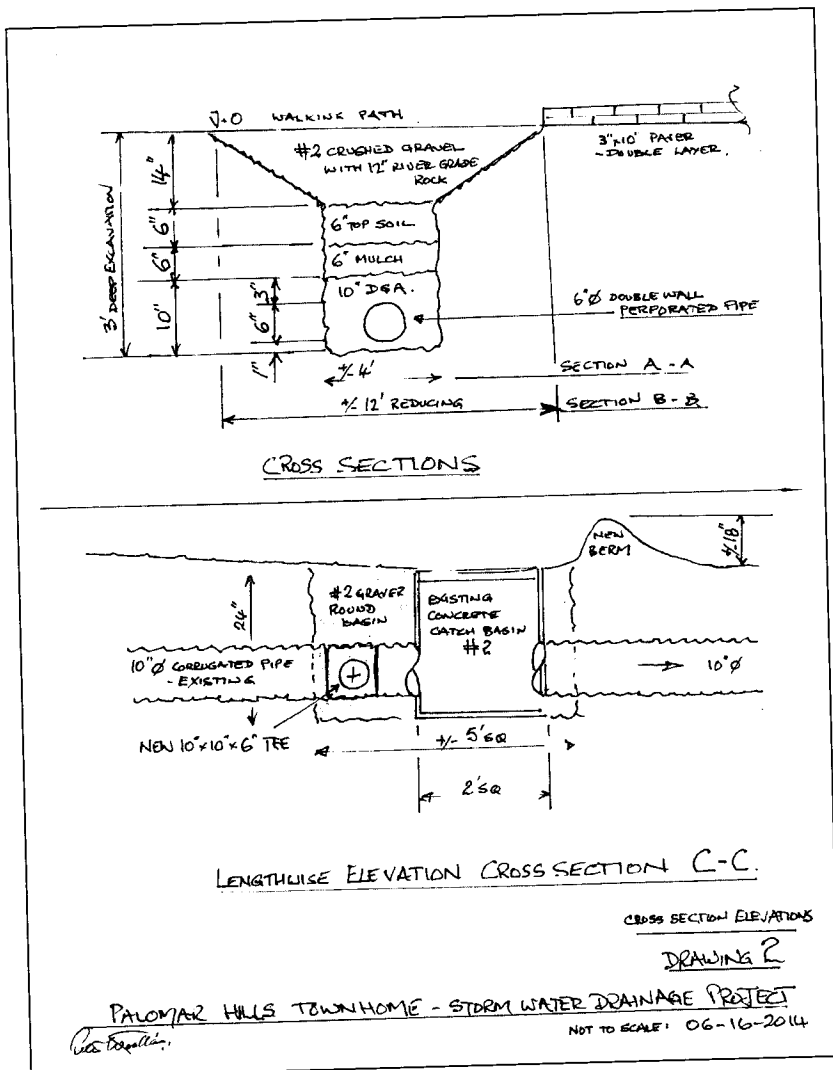 ∇±0 WALKING PATH
#2 CRUSHED GRAVEL
WITH 12" RIVER GRADE
ROCK
3"x10' PAVER
- DOUBLE LAYER.
3' DEEP EXCAVATION
14"
6"
6"
10"
6" TOP SOIL
6" MULCH
10" DGA.
3"
6"
1"
6"Ø DOUBLE WALL
PERFORATED PIPE
+/- 4'
SECTION A - A
+/- 12' REDUCING
SECTION B - B
CROSS SECTIONS
NEW
BERM
+/- 18"
24"
#2 GRAVEL
ROUND
BASIN
EXISTING
CONCRETE
CATCH BASIN
#2
10"Ø CORRUGATED PIPE
- EXISTING
10"Ø
NEW 10"x10"x6" TEE
+/- 5' SQ
2' SQ
LENGTHWISE ELEVATION CROSS SECTION C-C.
CROSS SECTION ELEVATIONS
DRAWING 2
PALOMAR HILLS TOWNHOME - STORM WATER DRAINAGE PROJECT
NOT TO SCALE: 06-16-2014